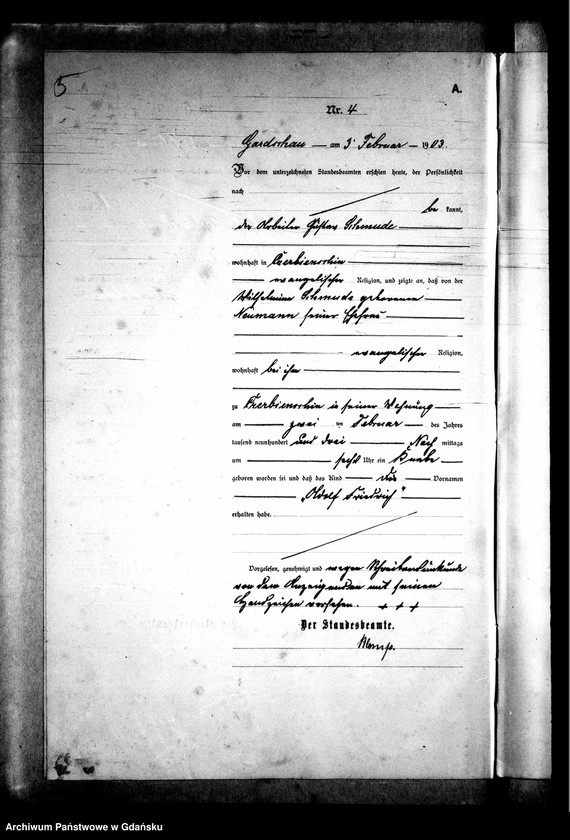 5
A.
Nr. 4
Gardschau — am 3 Februar — 1903.
Vor dem unterzeichneten Standesbeamten erschien heute, der Persönlichkeit
nach
be kannt,
der Arbeiter Gustav Schmude
wohnhaft in Czerbienschin
evangelischer Religion, und zeigte an, daß von der
Wilhelmine Schmude geborenen
Neumann seiner Ehefrau
evangelischer Religion,
wohnhaft bei ihm
zu Czerbienschin in seiner Wohnung
am zwei ten Februar des Jahres
tausend neunhundert und drei Nach mittags
um sechs Uhr ein Knabe
geboren worden sei und daß das Kind die Vornamen
„Adolf Friedrich"
erhalten habe.
Vorgelesen, genehmigt und wegen Schreibensunkunde
von dem Anzeigenden mit seinem
Handzeichen versehen. + + +
Der Standesbeamte.
Archiwum Państwowe w Gdańsku